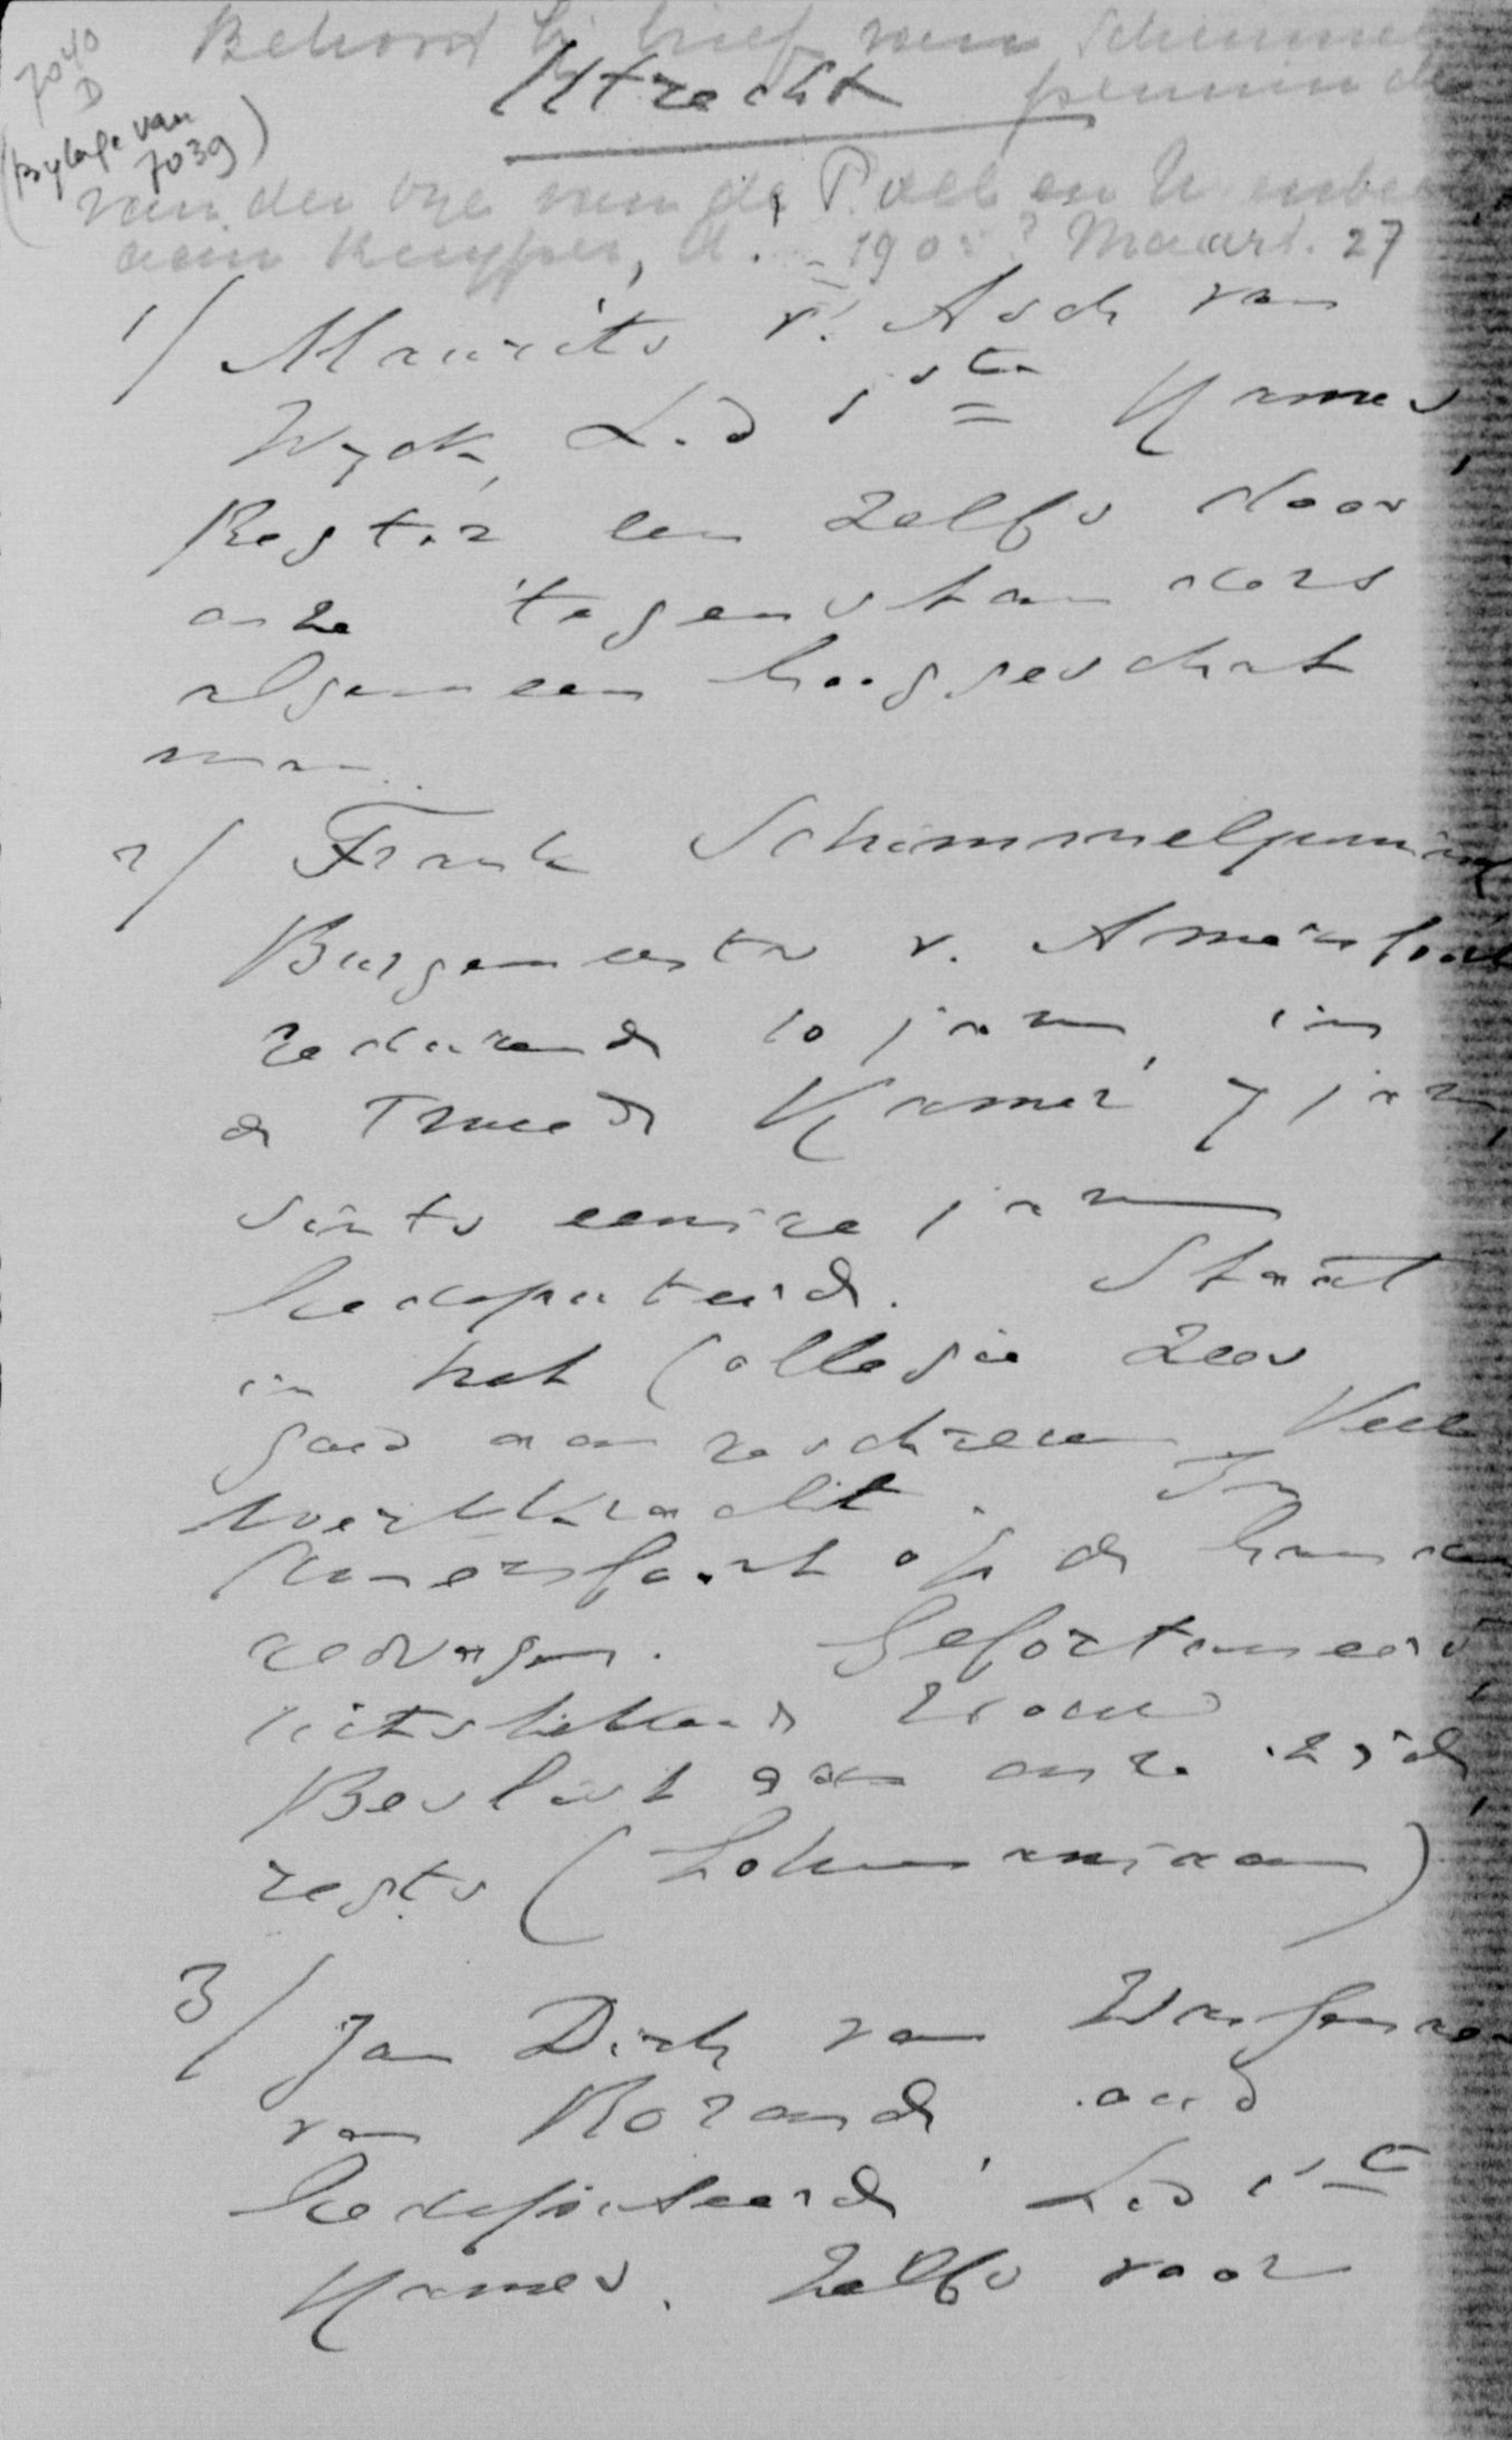 7040
D
(Bylage van
7039)
Behoort bij brief van Schimmel
pennin ck
Utrecht
van der Oye van de Poll en N
aan Kuyper, d. - 190 ? Maart. 27
1/ Maurits v. Asch van
Wyck, Lid 1ste Kamer,
Regter een zelfs door
onze tegenstanders
algemeen hooggeschat
man.
2/ Frank Schimmelpennin
Burgemeester v. Amersfoort
gedurende 10 jaren, in
de Tweede Kamer 7 jaren,
sints eenige jaren
Gedeputeerde. Staat
in het Collegie zeer
goed aangeschreven Veel
werkkracht. In
Amersfoort op de handen
gedragen. Gefortuneerd,
uitstekende vrouw
Beslist aan onze zijde,
regts (Lohmanniaan)
3/ Jan Dirk van Wassenaer
van Rosande oud
Gedeputeerde Lid 1ste
Kamer. Zelfs voor